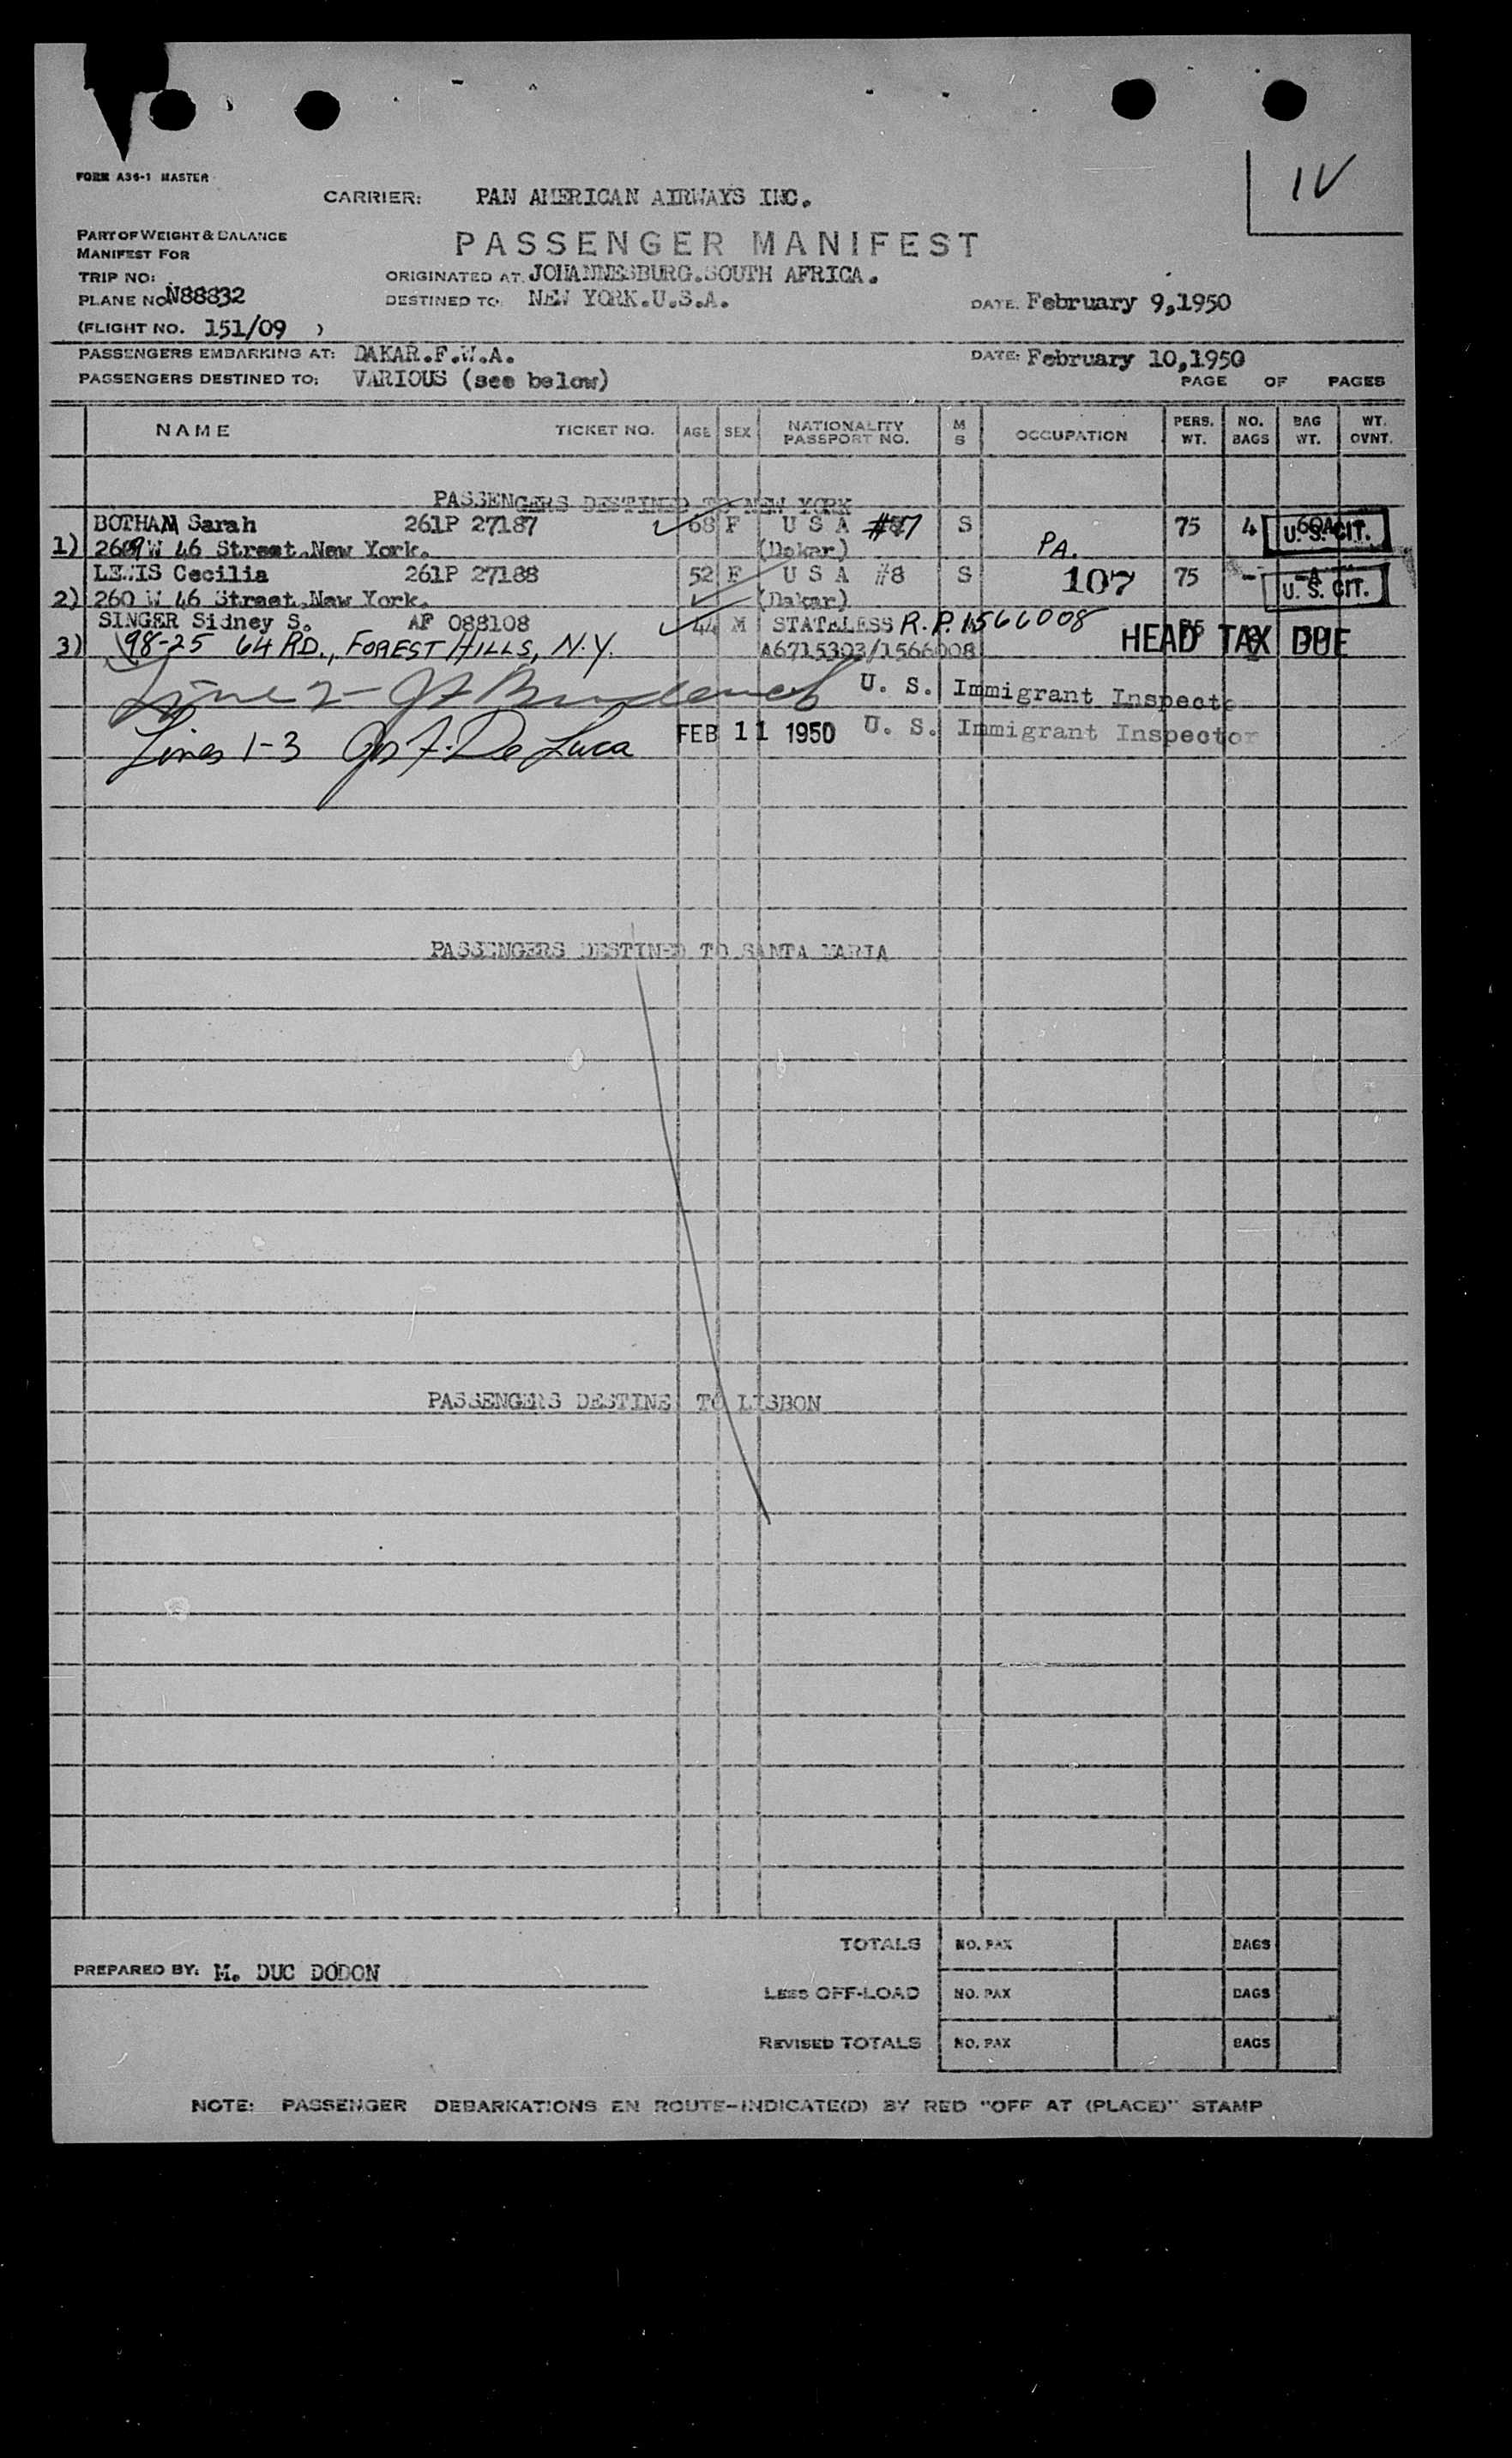 IV
FORM A36-1 MASTER
CARRIER: PAN AMERICAN AIRWAYS INC.
PART OF WEIGHT & BALANCE
MANIFEST FOR
PASSENGER MANIFEST
TRIP NO:
ORIGINATED AT: JOHANNESBURG.SOUTH AFRICA.
PLANE NO. N88832
DESTINED TO: NEW YORK.U.S.A.
DATE. February 9,1950
(FLIGHT NO. 151/09 )
PASSENGERS EMBARKING AT: DAKAR.F.W.A.
DATE: February 10,1950
PASSENGERS DESTINED TO: VARIOUS (see below)
PAGE OF PAGES
NAME TICKET NO. AGE SEX NATIONALITY PASSPORT NO. M S OCCUPATION PERS. WT. NO. BAGS BAG WT. WT. OVNT.
PASSENGERS DESTINED TO NEW YORK
BOTHAM Sarah 261P 27187 68 F U S A S 75 4 U. S. CIT.
1) W 46 Street.New York. (Dakar) PA.
LEWIS Cecilia 261P 27188 52 F U S A #8 S 107 75 - U. S. CIT.
2) 260 W 46 Street.New York. (Dakar)
SINGER Sidney S. AF 088108 44 M STATELESS R.P. 1566008 HEAD TAX DUE
3) 98-25 64 RD., FOREST HILLS, N.Y. A6715303/1566008
Line 2- U. S. Immigrant Inspector
Lines 1-3 Jos F. De Luca FEB 11 1950 U. S. Immigrant Inspector
PASSENGERS DESTINED TO SANTA MARIA
PASSENGERS DESTINE TO LISBON
TOTALS NO. PAX BAGS
PREPARED BY: M. DUC DODON
LESS OFF-LOAD NO. PAX BAGS
REVISED TOTALS NO. PAX BAGS
NOTE: PASSENGER DEBARKATIONS EN ROUTE-INDICATE(D) BY RED "OFF AT (PLACE)" STAMP